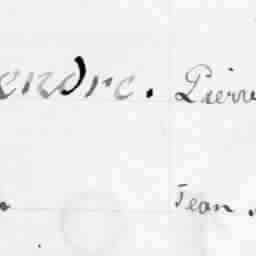 endre. Pierre
Jean